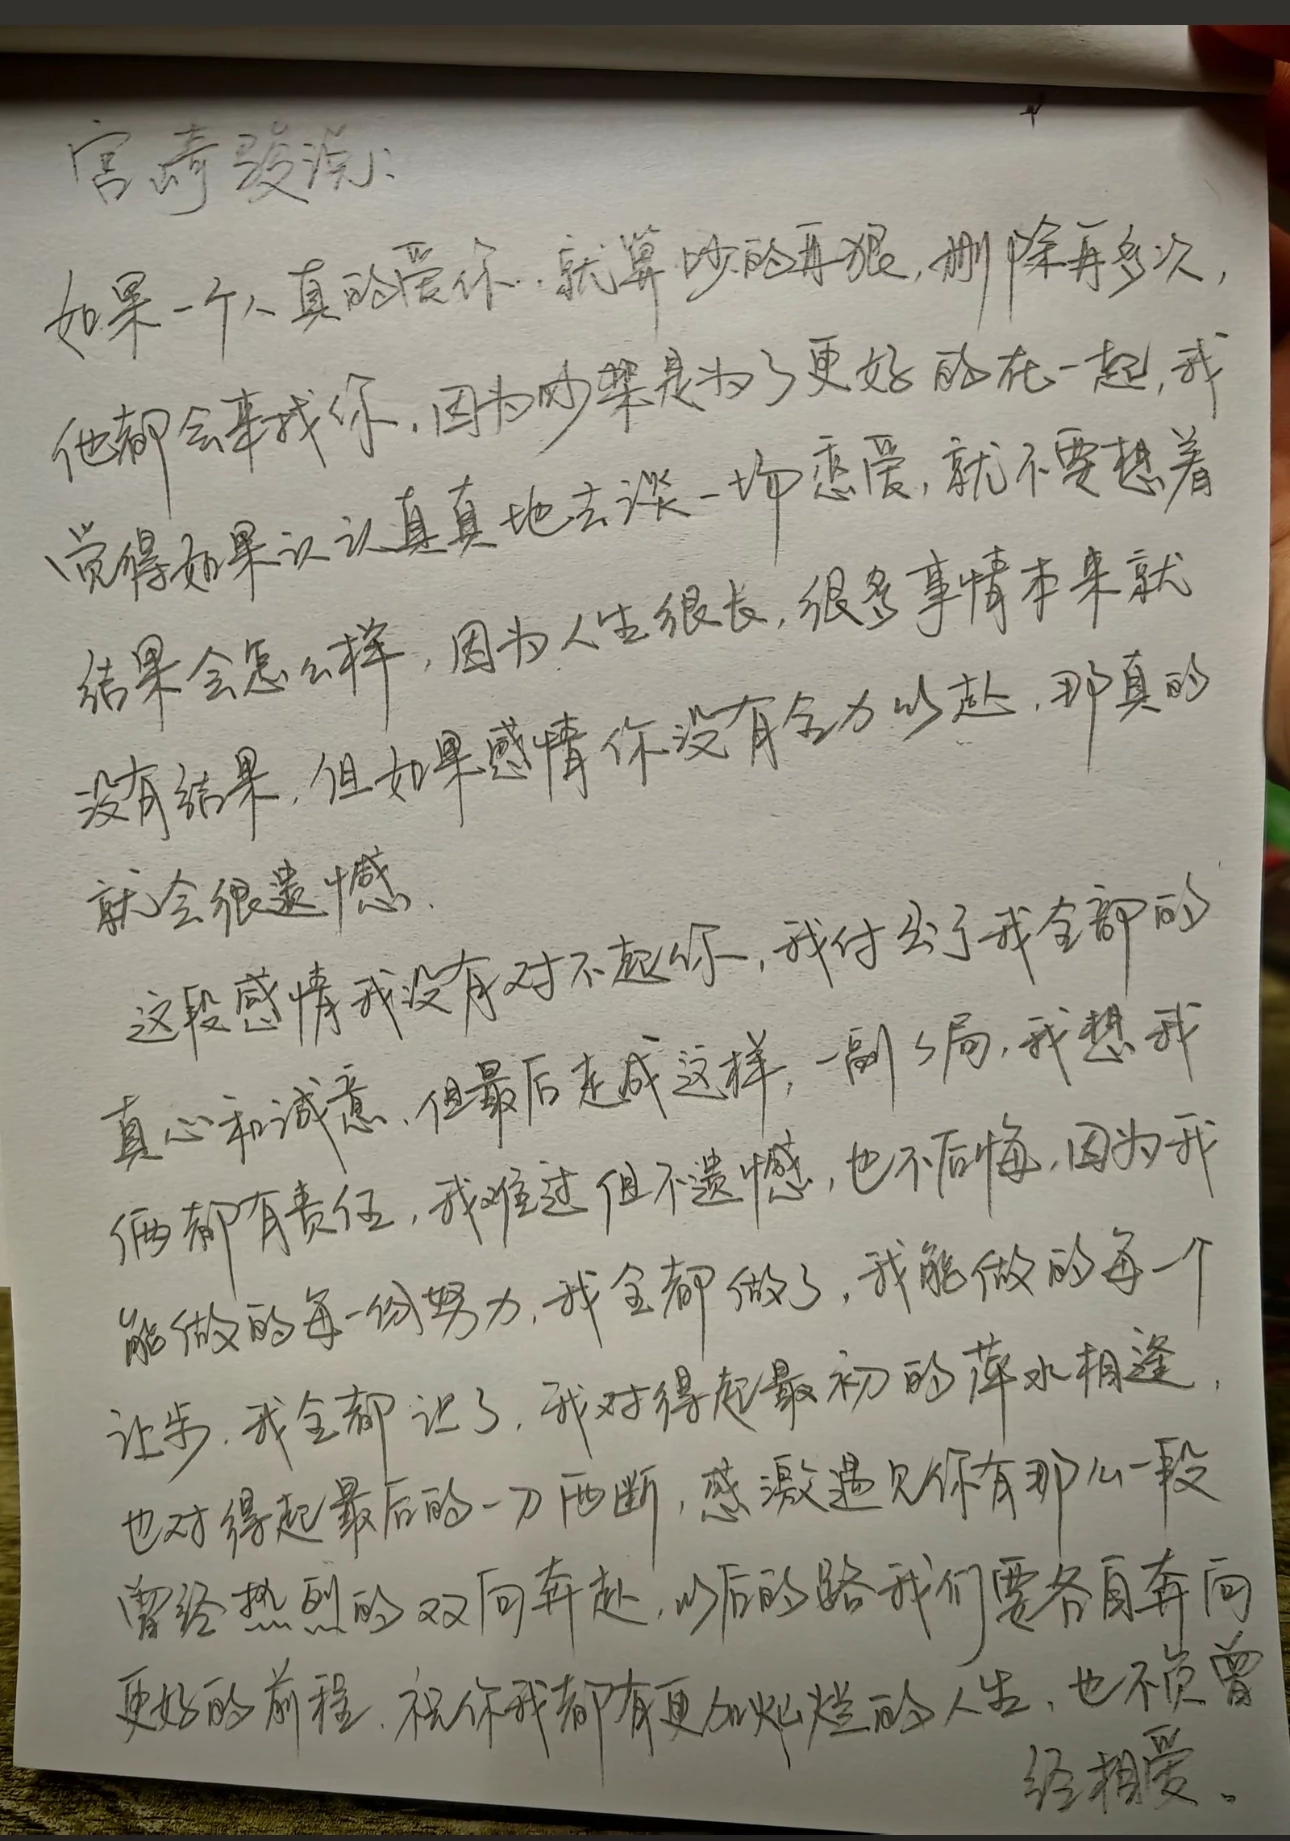 宫崎骏说:
如果一个人真的爱你,就算吵的再狠,删除再多次,
他都会来找你,因为吵架是为了更好的在一起,我
觉得如果认认真真地去谈一场恋爱,就不要想着
结果会怎么样,因为人生很长,很多事情本来就
没有结果,但如果感情你没有全力以赴,那真的
就会很遗憾.
这段感情我没有对不起你,我付出了我全部的
真心和诚意,但最后走成这样,一副局,我想我
俩都有责任,我难过但不遗憾,也不后悔,因为我
能做的每一份努力,我全都做了,我能做的每一个
让步,我全都让了,我对得起最初的萍水相逢,
也对得起最后的一刀两断,感激遇见你有那么一段
曾经热烈的双向奔赴,以后的路我们要各自奔向
更好的前程,祝你我都有更加灿烂的人生,也不负曾
经相爱。